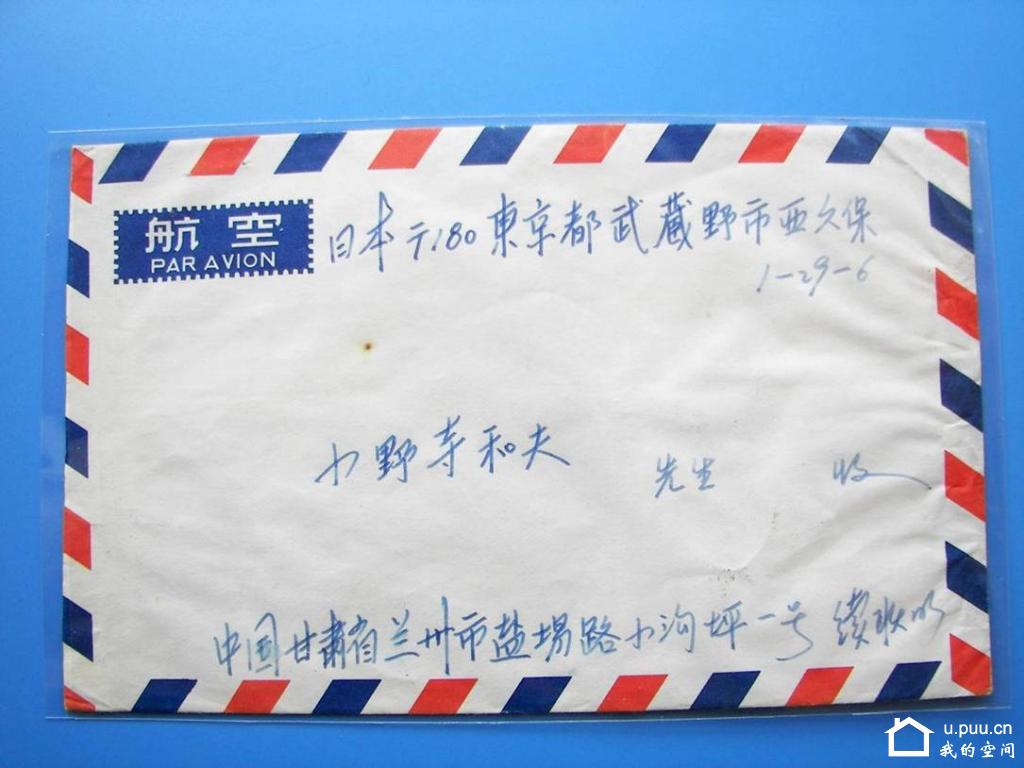 航空
PAR AVION
日本〒180東京都武蔵野市西久保
1-29-6
小野寺和夫 先生 收
中国甘肃省兰州市盐场路小沟坪一号
u.puu.cn
我的空间